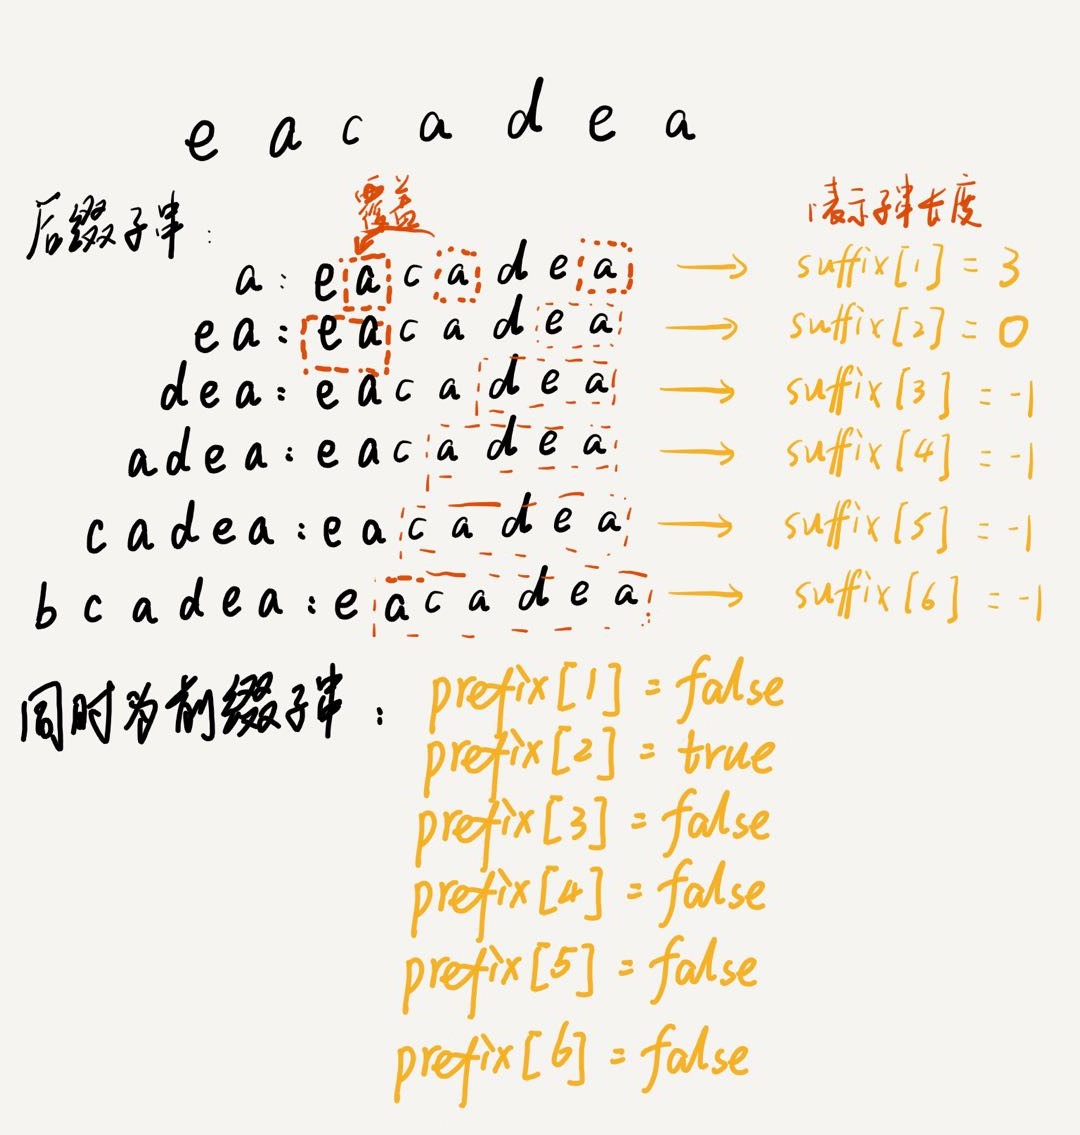 e a c a d e a
后缀子串:
覆盖
1表示子串长度
a: e a c a d e a → suffix[1] = 3
ea: e a c a d e a → suffix[2] = 0
dea: e a c a d e a → suffix[3] = -1
adea: e a c a d e a → suffix[4] = -1
cadea: e a c a d e a → suffix[5] = -1
bcadea: e a c a d e a → suffix[6] = -1
同时为前缀子串:
prefix[1] = false
prefix[2] = true
prefix[3] = false
prefix[4] = false
prefix[5] = false
prefix[6] = false